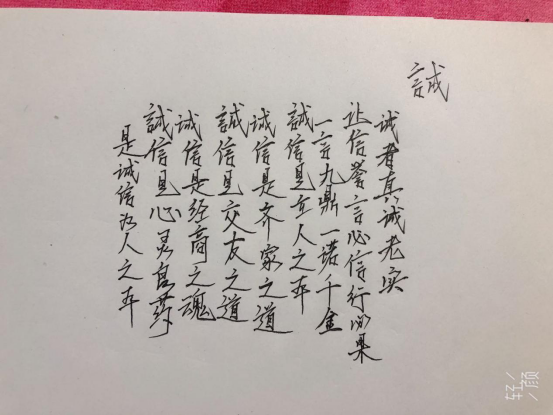 誠
诚者真诚老实
让信誉言必信行必果
一言九鼎一诺千金
誠信是立人之本
诚信是齐家之道
誠信是交友之道
诚信是经商之魂
誠信是心灵良药
是诚信为人之本
轻颜